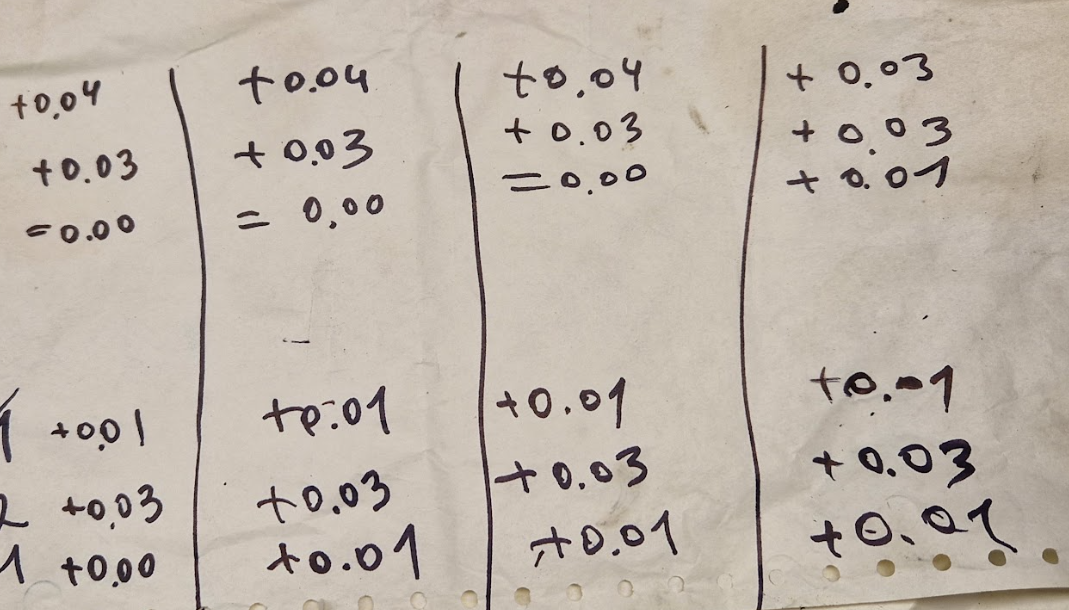 +0.04 +0.04 +0.04 + 0.03
+0.03 + 0.03 + 0.03 + 0.03
=0.00 = 0.00 =0.00 + 0.01
1 +0.01 +0.01 +0.01
2 +0.03 +0.03 +0.03 + 0.03
1 +0.00 +0.01 +0.01 +0.01